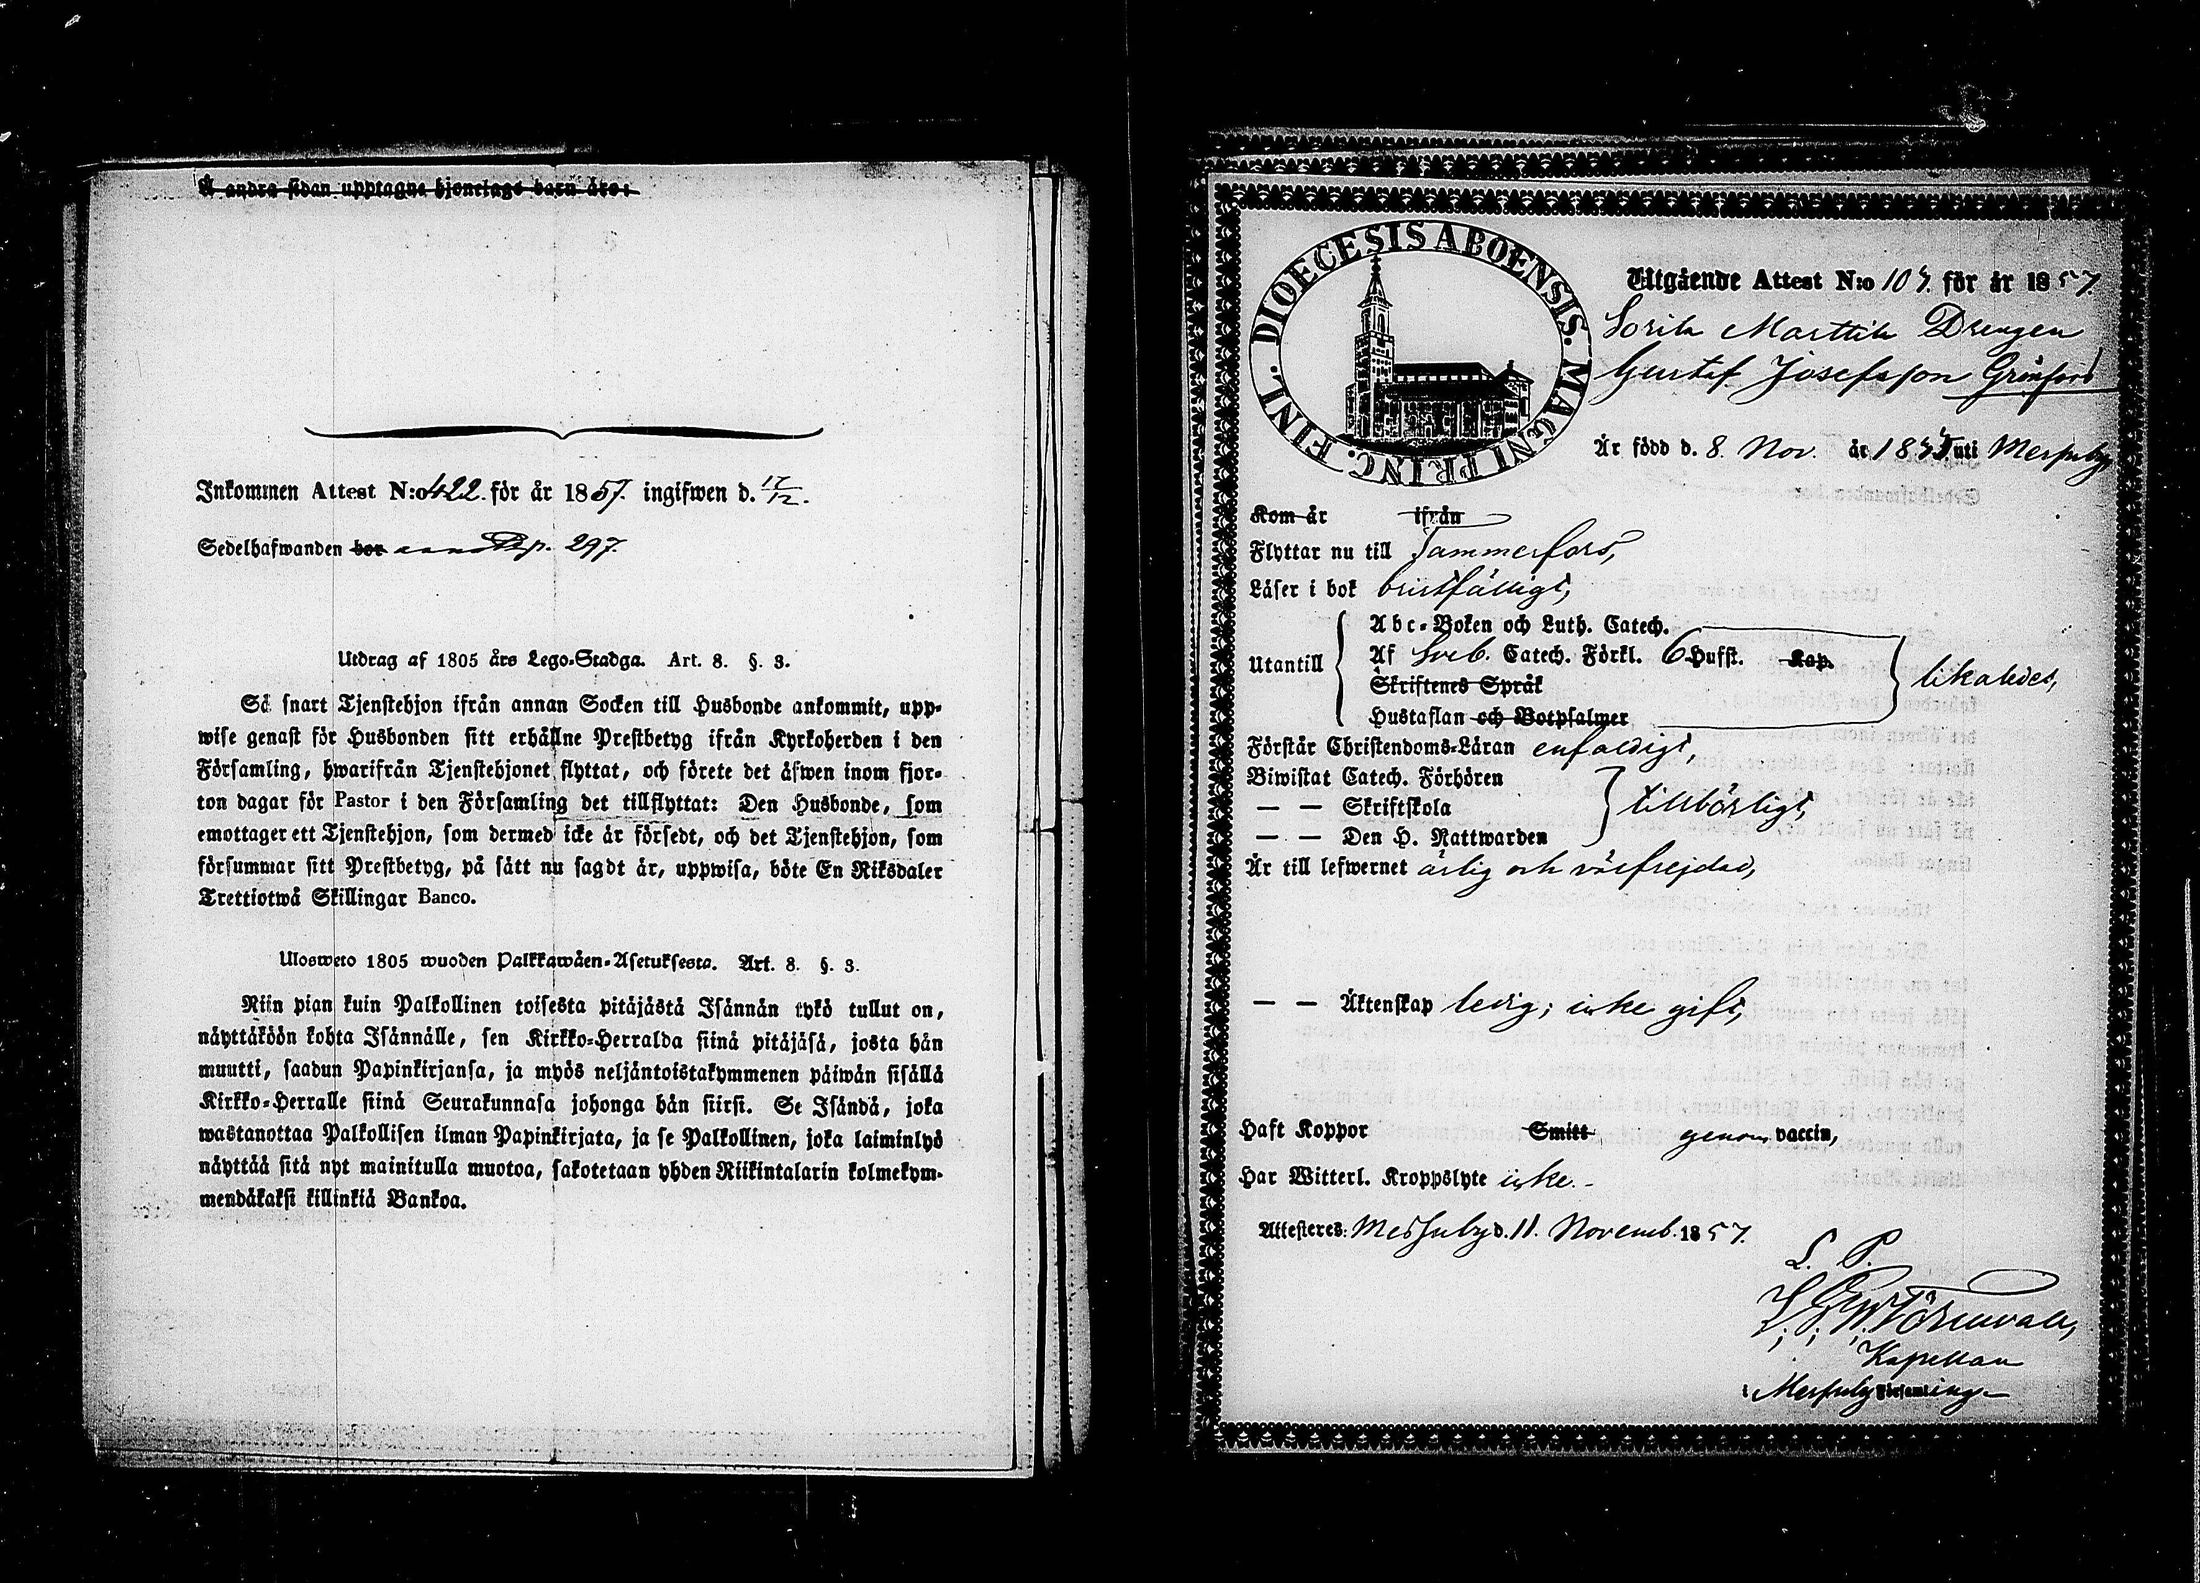 Å andra sidan upptagne hjonelags barn äro:
Inkommen Attest N:o 422. för år 1857. ingifwen d. 17/12.
Sedelhafwanden bor p. 297.
Utdrag af 1805 års Lego-Stadga. Art. 8. §. 3.
Så snart Tjenstehjon ifrån annan Socken till Husbonde ankommit, upp-
wise genast för Husbonden sitt erhållne Prestbetyg ifrån Kyrkoherden i den
Församling, hwarifrån Tjenstehjonet flyttat, och förete det äfwen inom fjor-
ton dagar för Pastor i den Församling det tillflyttat: Den Husbonde, som
emottager ett Tjenstehjon, som dermed icke är försedt, och det Tjenstehjon, som
försummar sitt Prestbetyg, på sätt nu sagdt är, uppwisa, böte En Riksdaler
Trettiotwå Skillingar Banco.
Ulosweto 1805 wuoden Palkkawäen-Asetuksesta. Art. 8. §. 3.
Niin pian kuin Palkollinen toisesta pitäjästä Isännän tykö tullut on,
näyttäköön kohta Isännälle, sen Kirkko-Herralda siinä pitäjäsä, josta hän
muutti, saadun Papinkirjansa, ja myös neljäntoistakymmenen päiwän sisällä
Kirkko-Herralle siinä Seurakunnasa johonga hän siirsi. Se Isändä, joka
wastanottaa Palkollisen ilman Papinkirjata, ja se Palkollinen, joka laiminlyö
näyttää sitä nyt mainitulla muotoa, sakotetaan yhden Riikintalarin kolmekym-
mendäkaksi killinkiä Bankoa.
DIOECESIS ABOENSIS. MAGNI PRINC. FINL.
Utgående Attest N:o 107. för år 1857.
Sorila Marttila Drengen
Gustaf Josefsson Grönfors
Är född d. 8. Nov. år uti Messuby
Kom år ifrån
Flyttar nu till Tammerfors,
Läser i bok bristfälligt,
Utantill
Abc-Boken och Luth. Catech.
Af Sveb. Catech. Förkl. 6 Hufst. Kap.
Skriftenes Språk
Hustaflan och Botpsalmer
likaledes,
Förstår Christendoms-Läran enfaldigt,
Biwistat Catech. Förhören
— — Skriftskola
— — Den H. Nattwarden
tillbörligt,
Är till lefwernet ärlig och välfrejdad,
— — Äktenskap ledig; icke gift,
Haft Koppor Smitt genom vaccin,
Har Witterl. Kroppslyte icke.
Attesteres: Messuby d. 11. Novemb. 1857.
L. P.
Törnwall,
Kapellan
i Messuby Församling